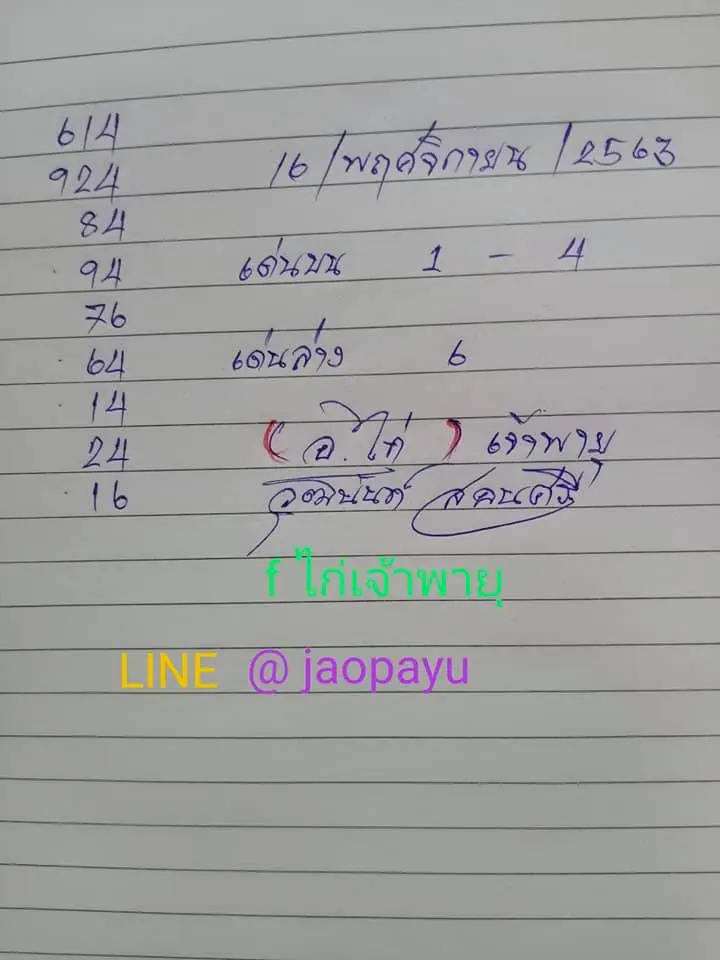 614
924
16/พฤศจิกายน/2563
84
94
เด่นบน 1 - 4
76
64
เด่นล่าง 6
14
24
(อ.ไก่) เจ้าพายุ
16
วุฒินันท์
f ไก่เจ้าพายุ
LINE @ jaopayu